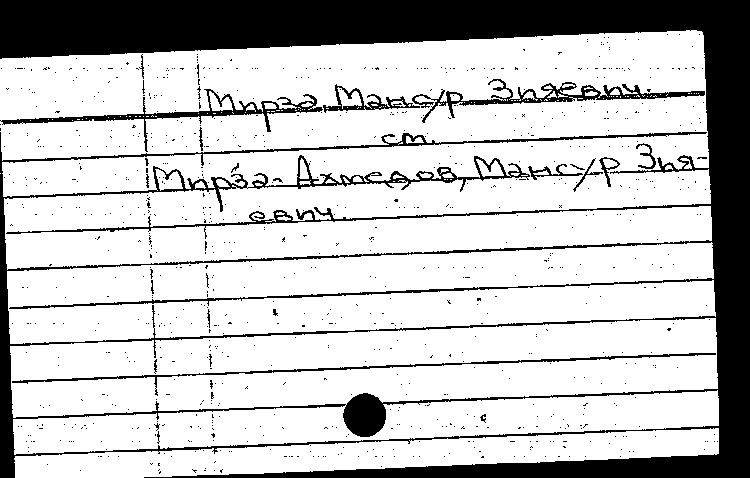 Мирза, Мансур Зияевич.
см.
Мирза-Ахмедов, Мансур Зия-
евич.